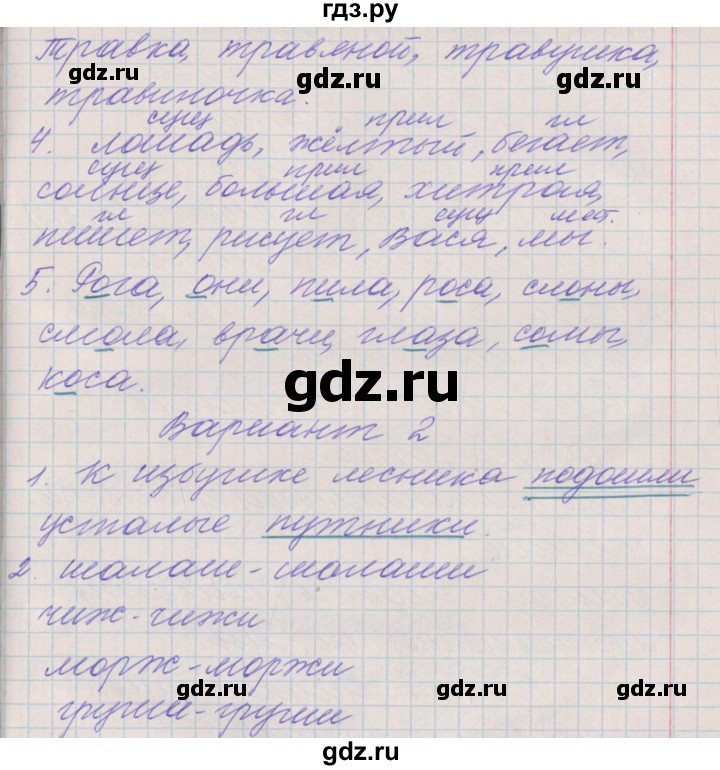 гдз.ру
травка, травяной, травушка,
gdz.ru gdz.ru gdz.ru
травиночка.
сущ прил гл
4. лошадь, жёлтый, бегает,
сущ прил прил
солнце, большая, хитрая,
гл гл сущ мест.
пишет, рисует, Вася, мы.
5. Рога, они, пила, роса, слоны,
gdz.ru gdz.ru
смола, врачи, глаза, сомы,
gdz.ru
коса.
Вариант 2
gdz.ru gdz.ru
1. К избушке лесника подошли
усталые путники.
gdz.ru gdz.ru
2. шалаш - шалаши
чиж - чижи
морж - моржи
gdz.ru gdz.ru gdz.ru
груша - груши
gdz.ru